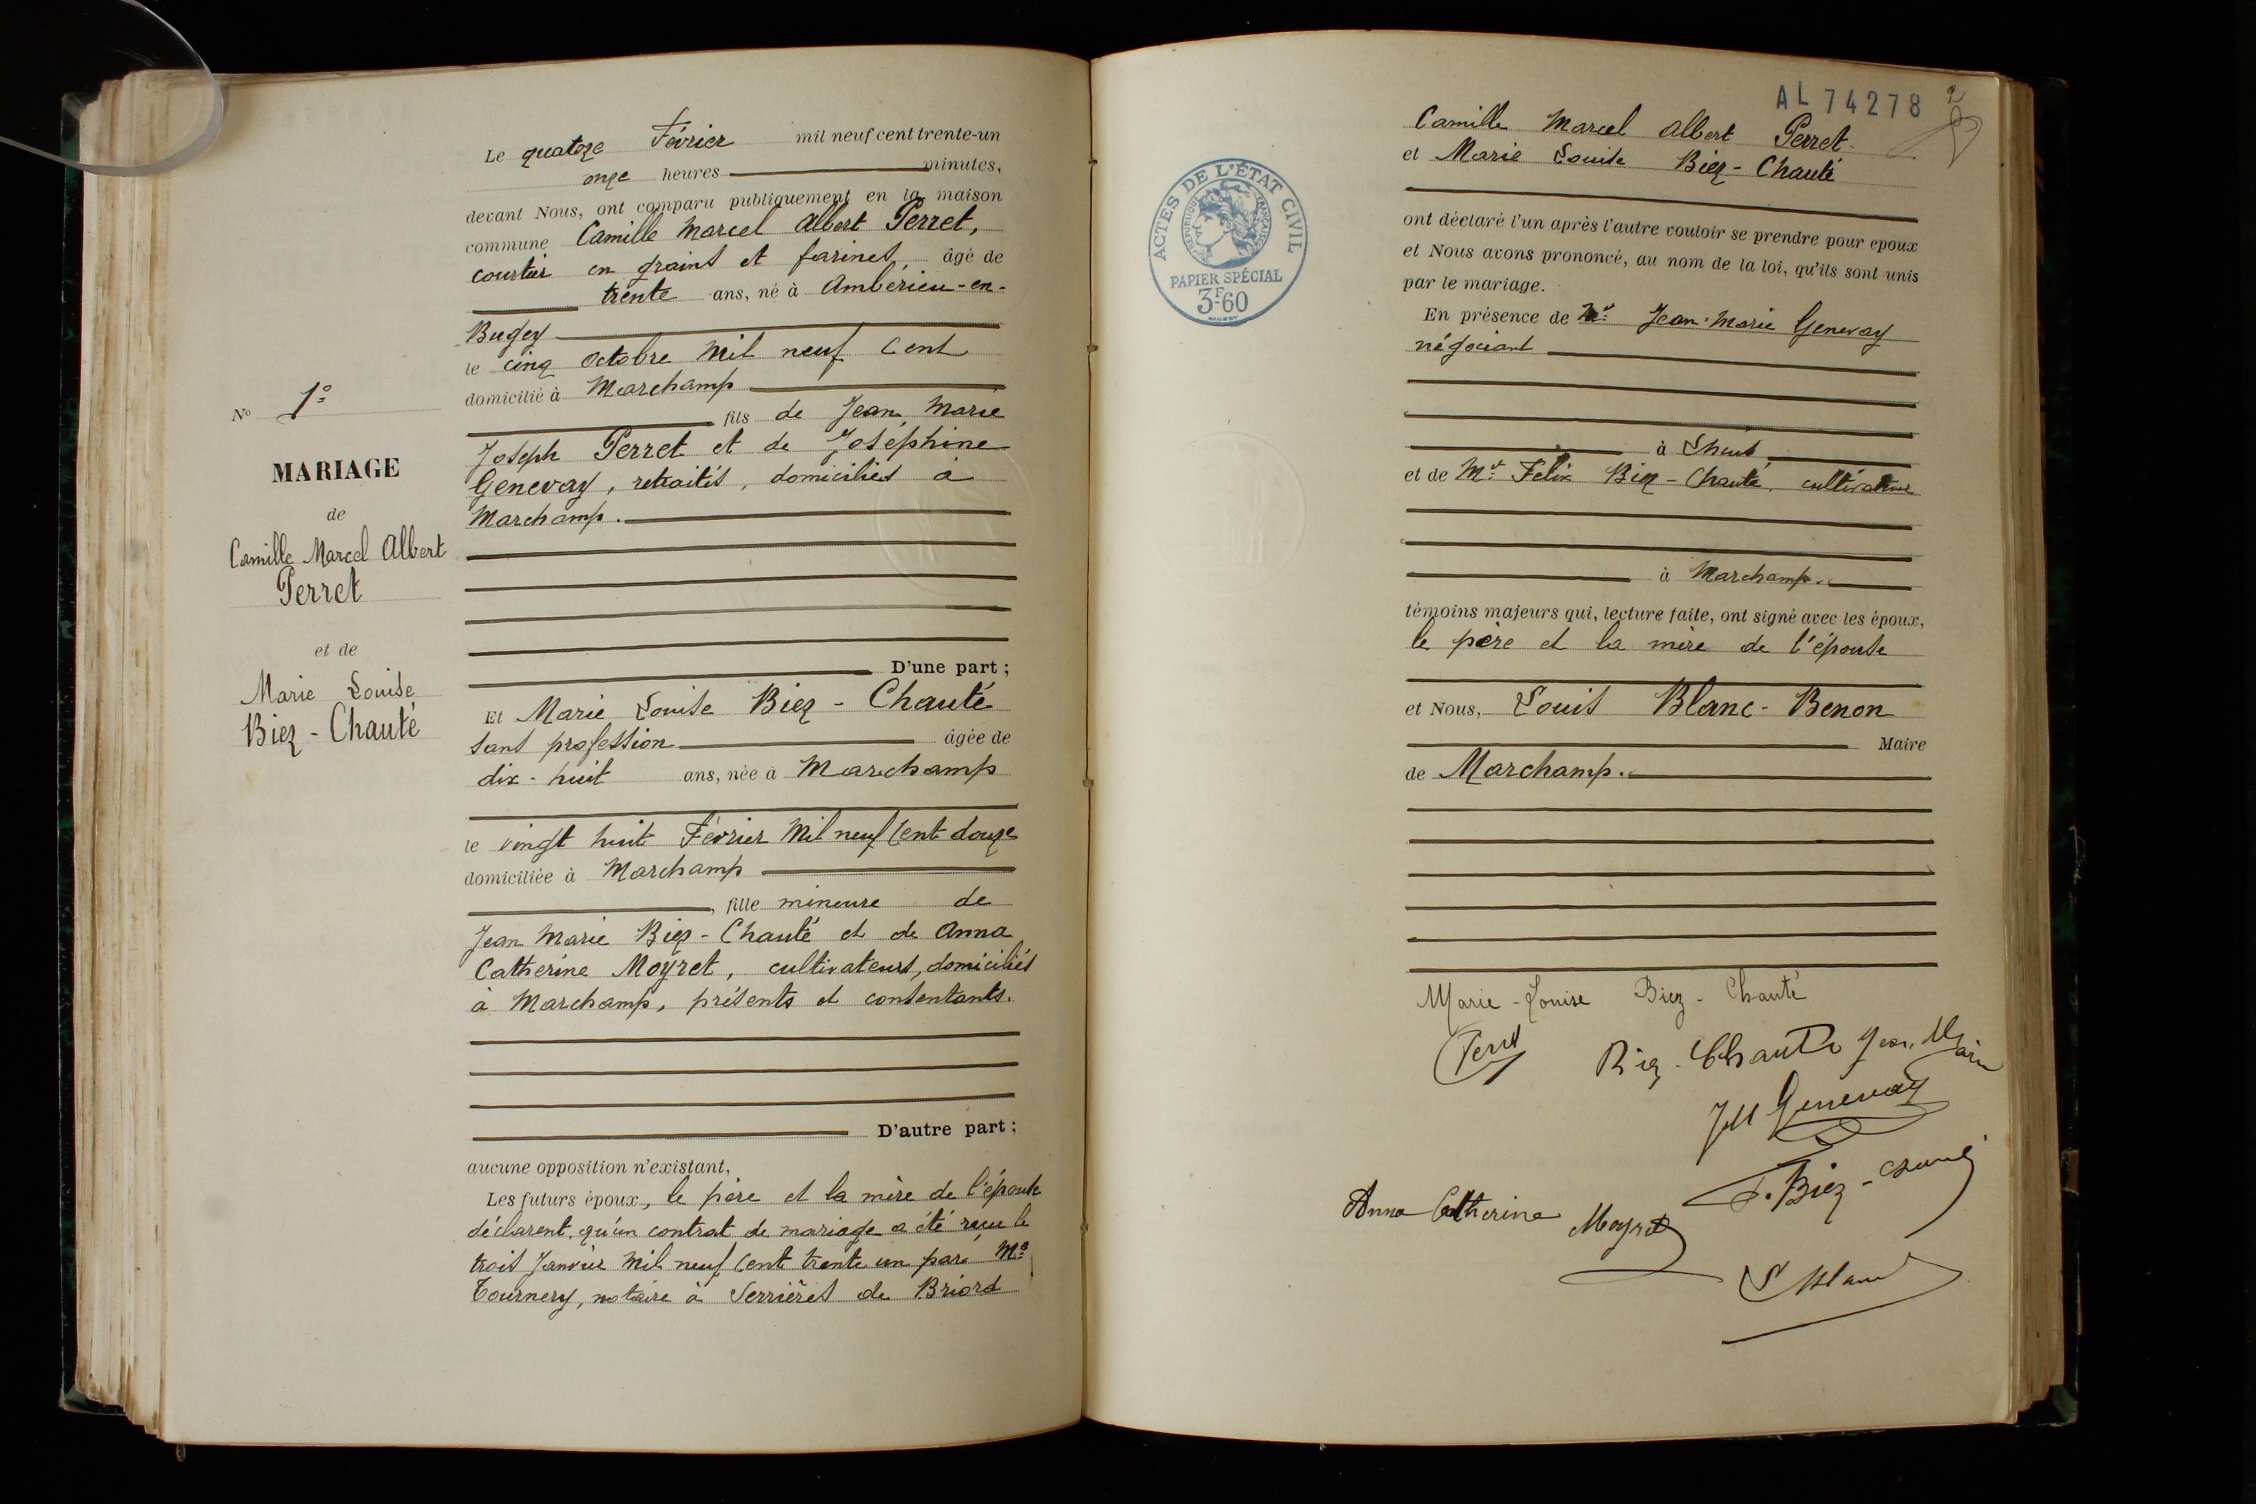 Le quatorze Février mil neuf cent trente-un
onze heures minutes,
devant Nous, ont comparu publiquement en la maison
commune Camille Marcel Albert Perret,
courtier en grains et farines, âgé de
trente ans, né à Ambérieu-en-
Bugey
le cinq octobre mil neuf cent
domicilié à Marchamp
fils de Jean Marie
Joseph Perret et de Joséphine
Genevay, retraités, domiciliés à
Marchamp.
D'une part;
Et Marie Louise Biez-Chauté
sans profession âgée de
dix-huit ans, née à Marchamp
le vingt huit Février mil neuf cent douze
domiciliée à Marchamp
, fille mineure de
Jean Marie Biez-Chauté et de Anna
Catherine Moyret, cultivateurs, domiciliés
à Marchamp, présents et consentants.
D'autre part;
aucune opposition n'existant,
Les futurs époux, le père et la mère de l'épouse
déclarent qu'un contrat de mariage a été reçu le
trois Janvier mil neuf cent trente un par Me
Tournery, notaire à Serrières de Briord
No 1o
MARIAGE
de
Camille Marcel Albert
Perret
et de
Marie Louise
Biez-Chauté
AL 74278
2
ACTES DE L'ÉTAT CIVIL
RÉPUBLIQUE FRANÇAISE
PAPIER SPÉCIAL
3F60
Camille Marcel Albert Perret
et Marie Louise Biez-Chauté
ont déclaré l'un après l'autre vouloir se prendre pour époux
et Nous avons prononcé, au nom de la loi, qu'ils sont unis
par le mariage.
En présence de Mr Jean-Marie Genevay
négociant
à
et de Mr Félix Biez-Chauté, cultivateur
à Marchamp.
témoins majeurs qui, lecture faite, ont signé avec les époux,
le père et la mère de l'épouse
et Nous, Louis Blanc-Benon
Maire
de Marchamp.
Marie-Louise Biez-Chauté
Perret
Biez-Chauté Jean Marie
JM Genevay
F. Biez-Chauté
Anna Catherine Moyret
L Blanc